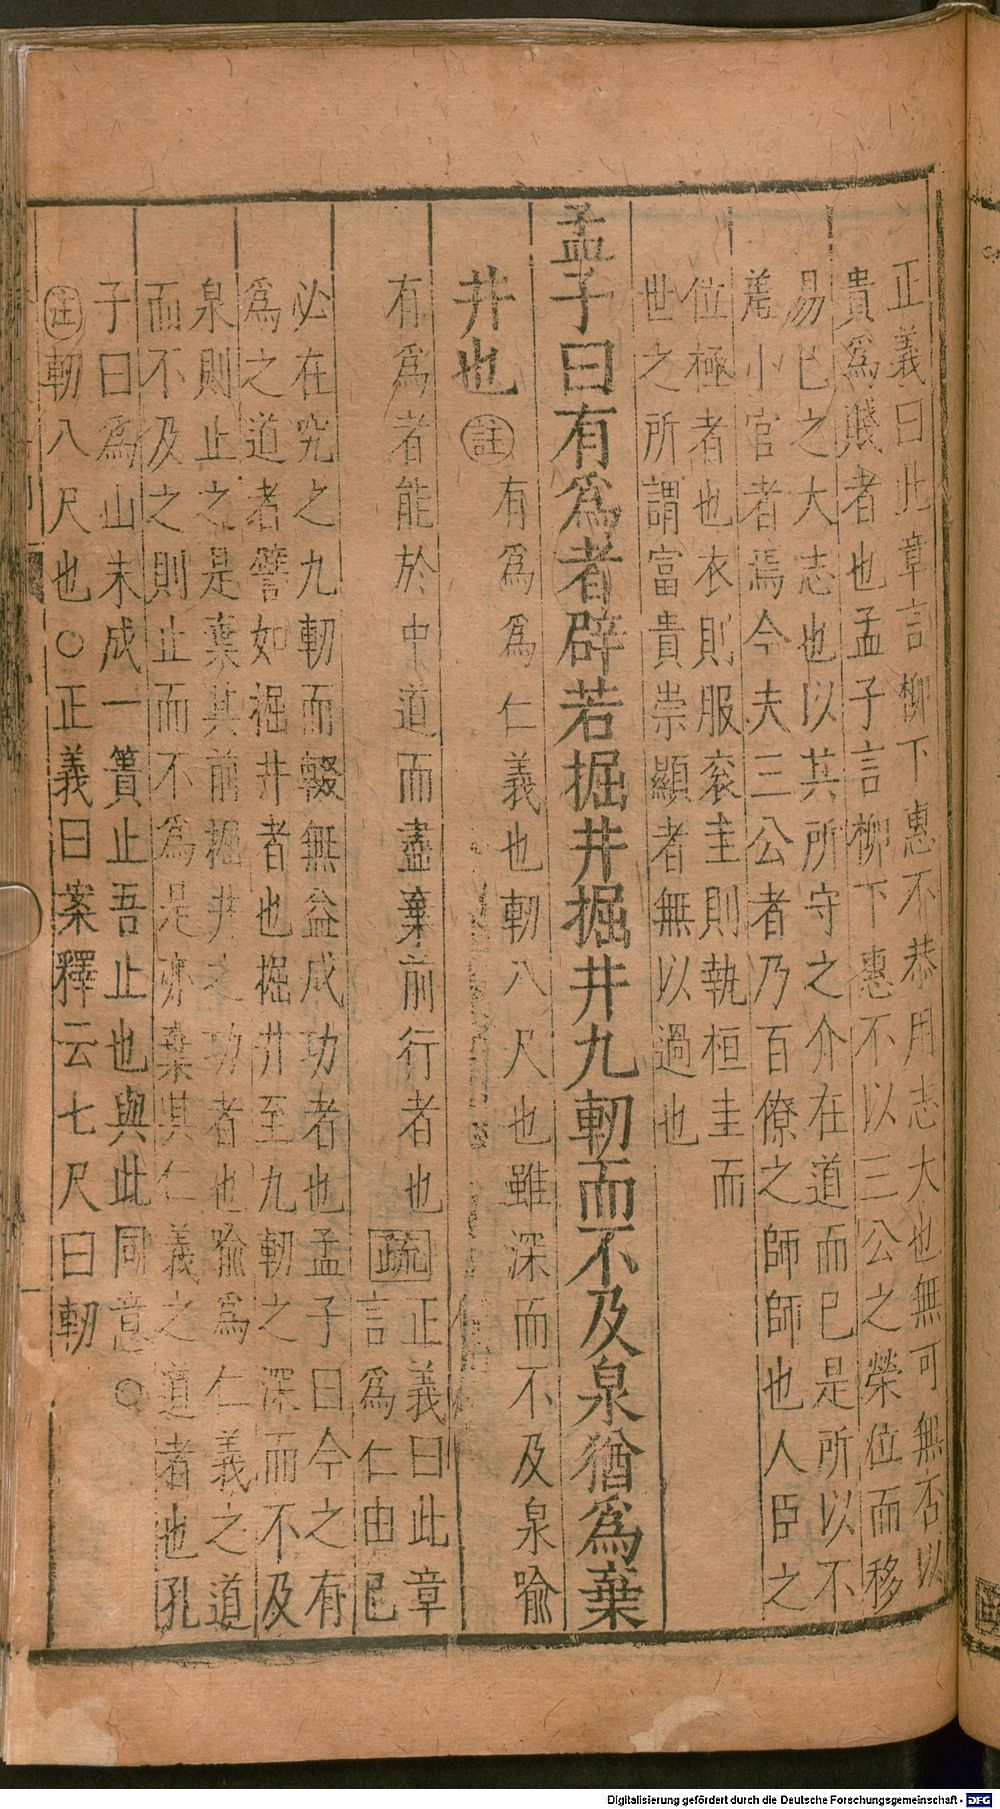 正義曰此章言柳下惠不恭用志大也無可無否以
貴爲賤者也孟子言柳下惠不以三公之榮位而移
易已之大志也以其所守之介在道而已是所以不
羞小官者焉今夫三公者乃百僚之師師也人臣之
位極者也衣則服衮圭則執桓圭而
世之所謂富貴崇顯者無以過也
孟子曰有爲者辟若掘井掘井九軔而不及泉猶爲棄
井也
註
有爲爲仁義也軔八尺也雖深而不及泉喻
有爲者能於中道而盡棄前行者也
疏
正義曰此章
言爲仁由已
必在究之九軔而輟無益成功者也孟子曰今之有
爲之道者譬如掘井者也掘井至九軔之深而不及
泉則止之是棄其前掘井之功者也喻爲仁義之道
而不及之則止而不爲是亦棄其仁義之道者也孔
子曰爲山未成一簣止吾止也與此同意○
註軔八尺也○正義曰案釋云七尺曰軔
Digitalisierung gefördert durch die Deutsche Forschungsgemeinschaft - DFG